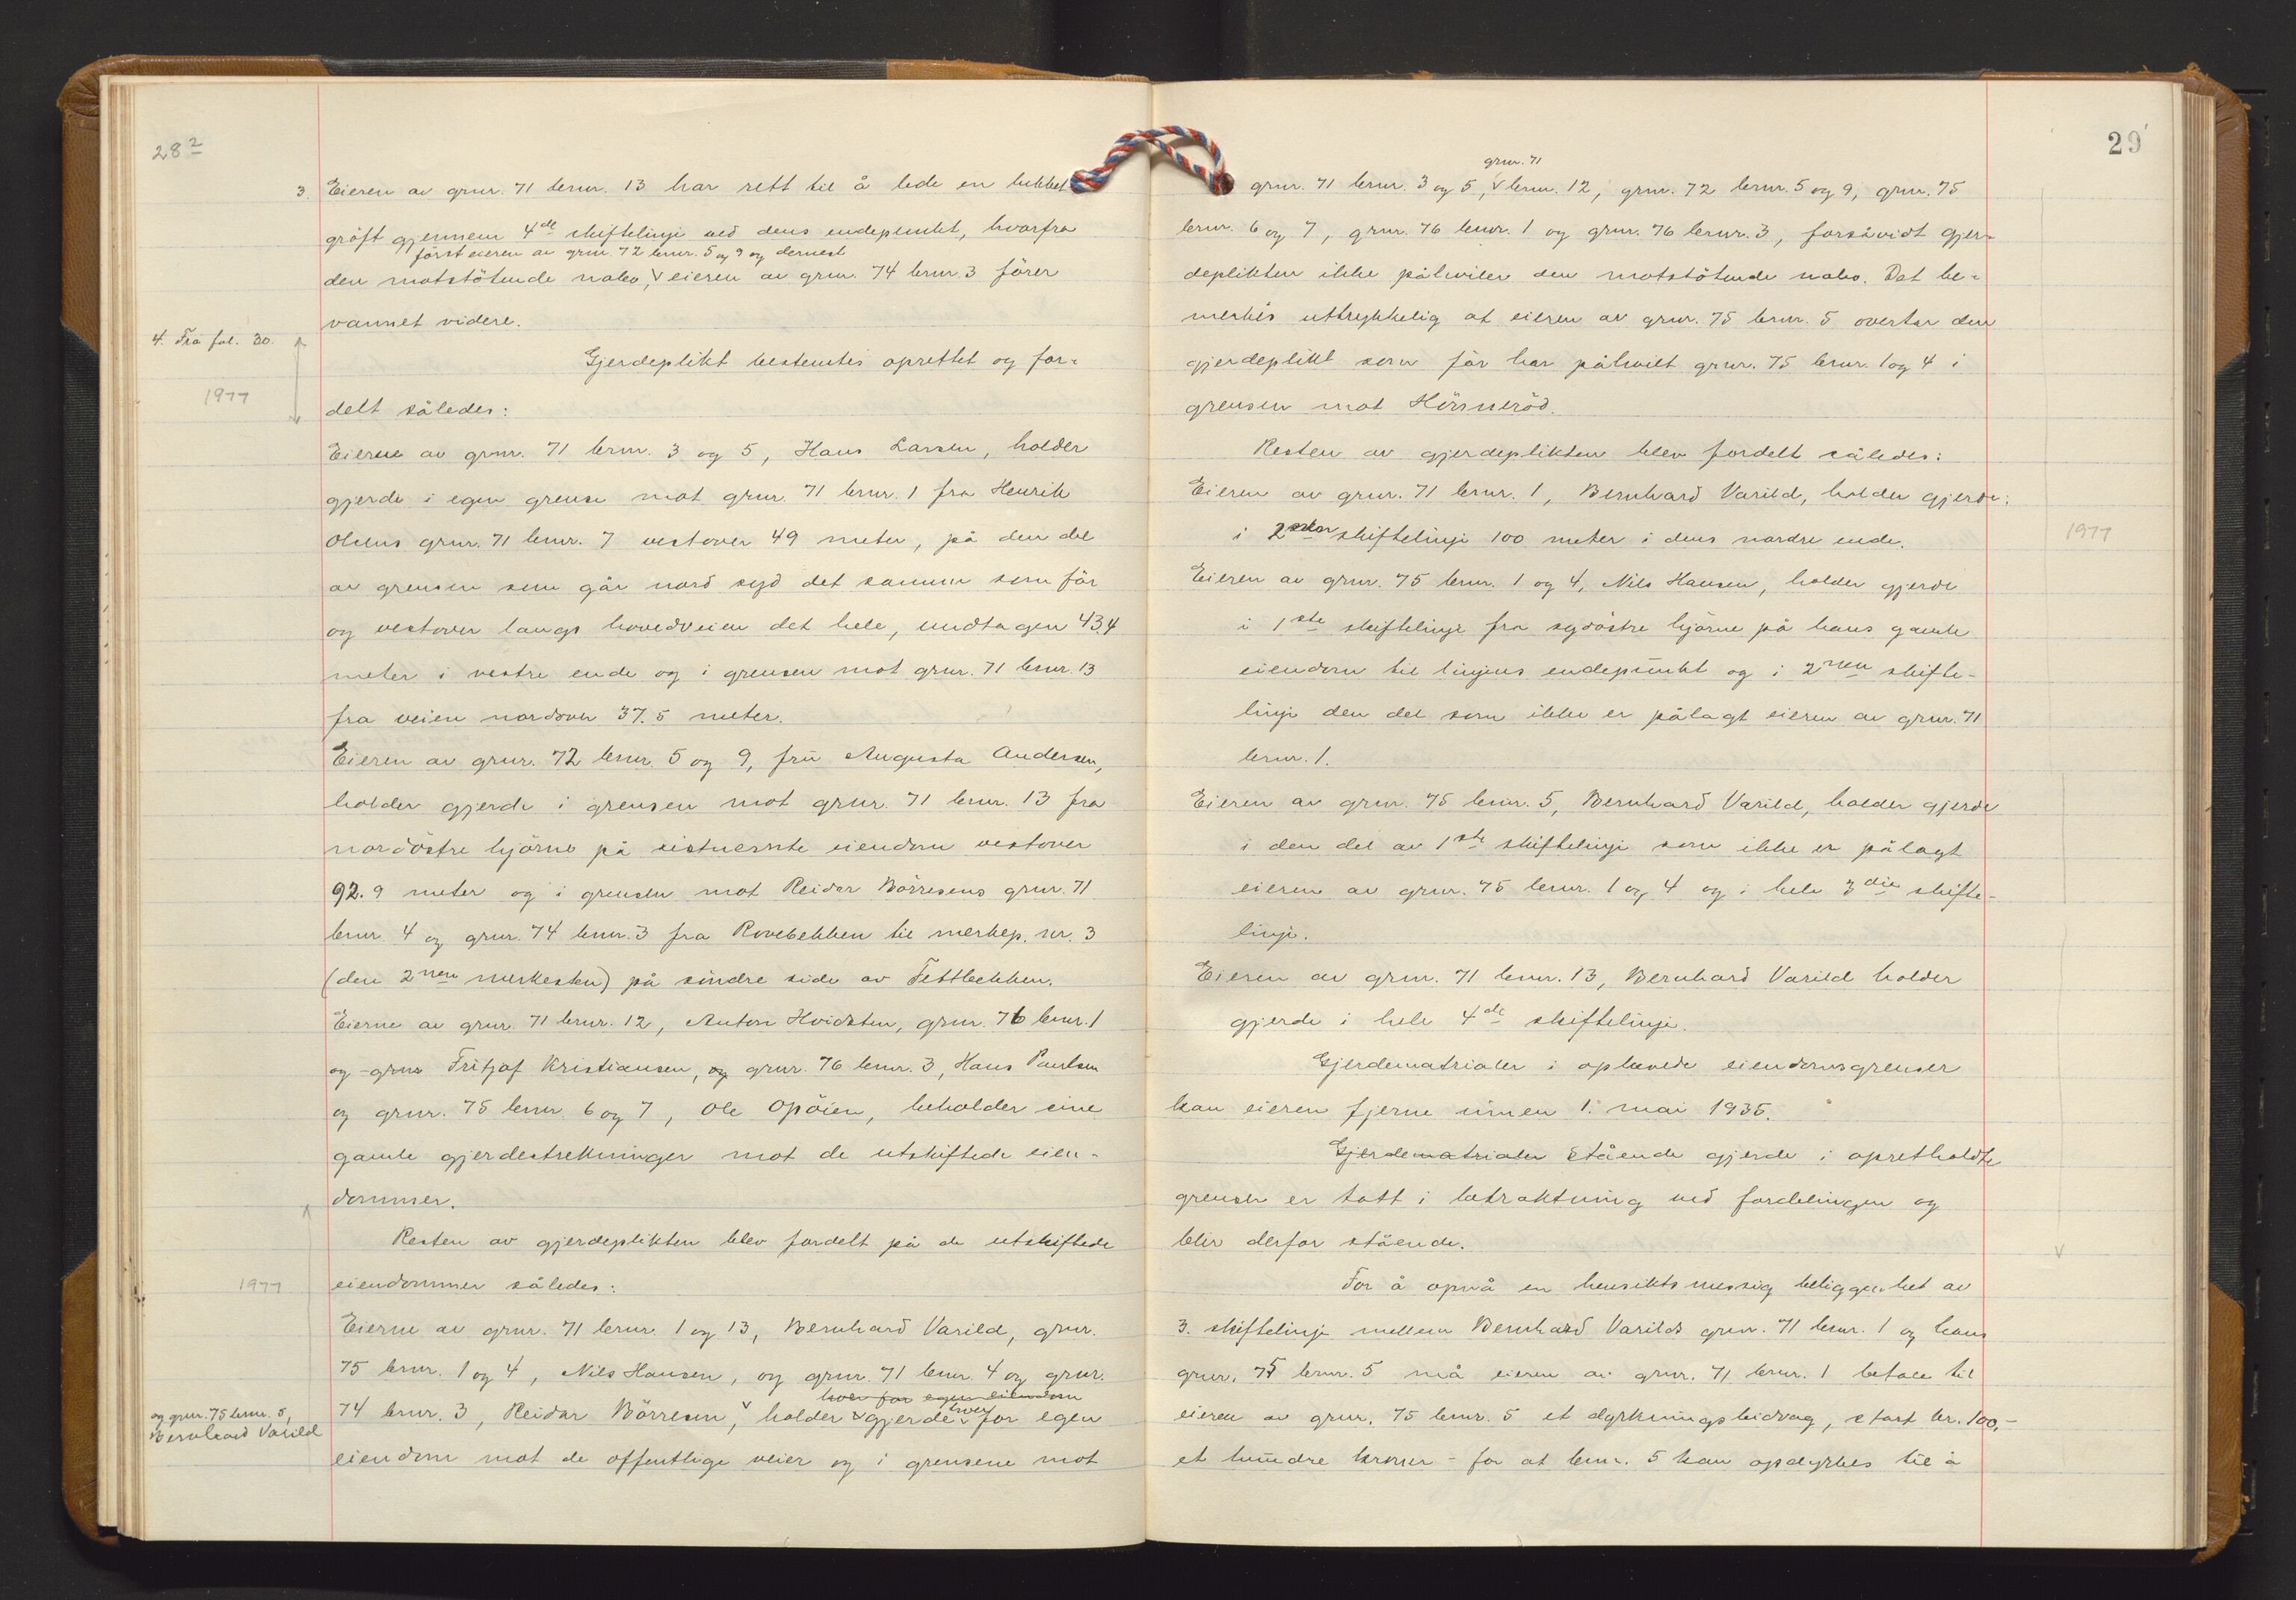 28²
3. Eieren av gnr. 71 bnr. 13 har rett til å lede en lukket
gröft gjennem 4de skiftelinje ved dens endepunkt, hvorfra
först eieren av gnr. 72 bnr. 5 og 9 og dernest
den motstötende nabo, v eieren av gnr. 74 bnr. 3 förer
vannet videre.
4. Fra fol. 30.
Gjerdeplikt bestemtes oprettet og for-
1977
delt således:
Eierne av gnr. 71 bnr. 3 og 5, Hans Larsen, holder
gjerde i egen grense mot gnr. 71 bnr. 1 fra Henrik
Olsens gnr. 71 bnr. 7 vestover 49 meter, på den del
av grensen som går nord syd det samme som för
og vestover langs hovedveien det hele, undtagen 43,4
meter i vestre ende og i grensen mot gnr. 71 bnr. 13
fra veien nordover 37.5 meter.
Eieren av gnr. 72 bnr. 5 og 9, fru Augusta Andersen,
holder gjerde i grensen mot gnr. 71 bnr. 13 fra
nordöstre hjörne på sistnevnte eiendom vestover
92.9 meter og i grensen mot Reidar Börresens gnr. 71
bnr. 4 og gnr. 74 bnr. 3 fra Rovebekken til merkep. nr. 3
(den 2nen merkesten) på söndre side av Tettbekken.
Eierne av gnr. 71 bnr. 12, Anton Hvidsten, gnr. 76 bnr. 1
og gnr Fritjof Kristiansen, og gnr. 76 bnr. 3, Hans Paulsen
og gnr. 75 bnr. 6 og 7, Ole Opöien, beholder sine
gamle gjerdestrekninger mot de utskiftede eien-
dommer.
Resten av gjerdeplikten blev fordelt på de utskiftede
1977
eiendommer således:
Eierne av gnr. 71 bnr. 1 og 13, Bernhard Varild, gnr.
75 bnr. 1 og 4, Nils Hansen, og gnr. 71 bnr. 4 og gnr.
hver for egen eiendom
74 bnr. 3, Reidar Börresen, v holder v gjerde v hver for egen
og gnr. 75 bnr. 5,
Bernhard Varild
eiendom mot de offentlige veier og i grensene mot
29
gnr. 71
gnr. 71 bnr. 3 og 5, v bnr. 12, gnr. 72 bnr. 5 og 9, gnr. 75
bnr. 6 og 7, gnr. 76 bnr. 1 og gnr. 76 bnr. 3, forsåvidt gjer-
deplikten ikke påhviler den motstötende nabo. Det be-
merkes uttrykkelig at eieren av gnr. 75 bnr. 5 overtar den
gjerdeplikt som för har påhvilt gnr. 75 bnr. 1 og 4 i
grensen mot Hörsneröd.
Resten av gjerdeplikten blev fordelt således:
Eieren av gnr. 71 bnr. 1, Bernhard Varild, holder gjerde:
i 2nen skiftelinje 100 meter i dens nordre ende.
1977
Eieren av gnr. 75 bnr. 1 og 4, Nils Hansen, holder gjerde
i 1ste skiftelinje fra sydöstre hjörne på hans gamle
eiendom til linjens endepunkt og i 2nen skifte-
linje den del som ikke er pålagt eieren av gnr. 71
bnr. 1.
Eieren av gnr. 75 bnr. 5, Bernhard Varild, holder gjerde
i den del av 1ste skiftelinje som ikke er pålagt
eieren av gnr. 75 bnr. 1 og 4 og i hele 3die skifte-
linje.
Eieren av gnr. 71 bnr. 13, Bernhard Varild holder
gjerde i hele 4de skiftelinje.
Gjerdematrialer i ophevede eiendomsgrenser
kan eieren fjerne innen 1. mai 1935.
Gjerdematrialer Stående gjerde i opretholdte
grenser er tatt i betraktning ved fordelingen og
blir derfor stående.
For å opnå en hensiktsmessig beliggenhet av
3. skiftelinje mellem Bernhard Varilds gnr. 71 bnr. 1 og hans
gnr. 75 bnr. 5 må eieren av gnr. 71 bnr. 1 betale til
eieren av gnr. 75 bnr. 5 et dyrkningsbidrag, stort kr. 100,-
et hundre kroner - for at bnr. 5 kan opdyrkes til å